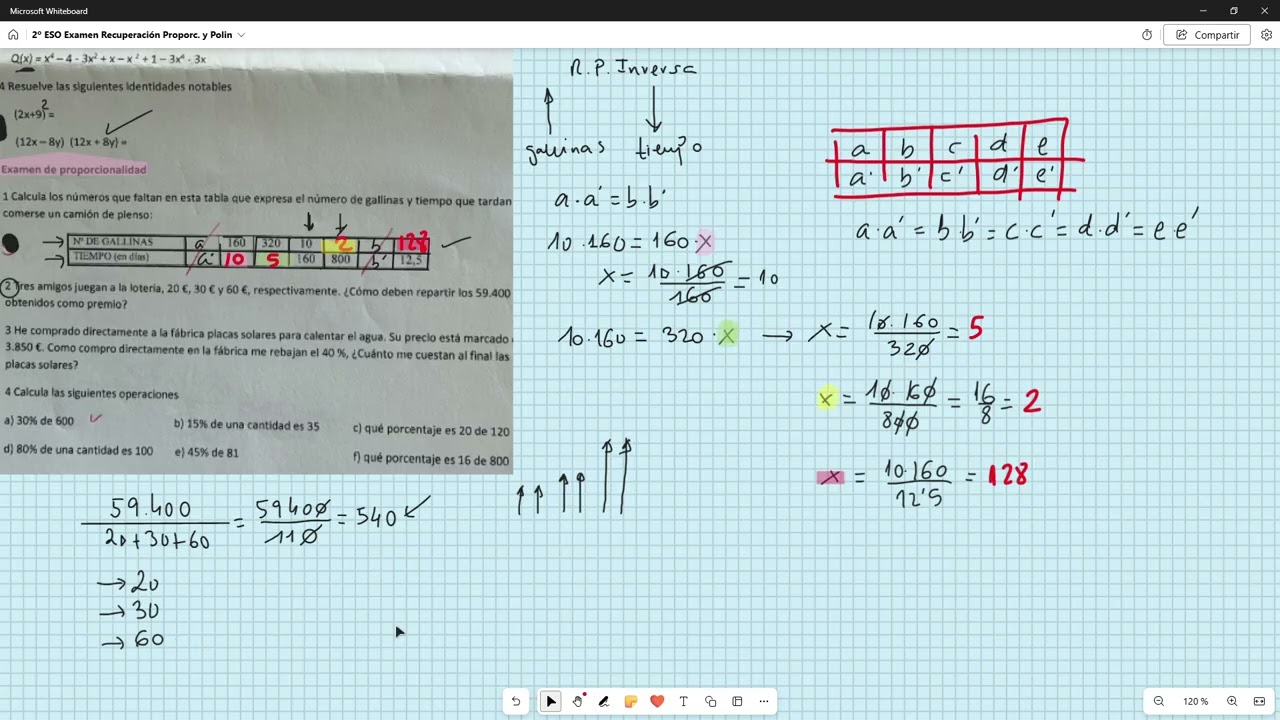 Microsoft Whiteboard
2º ESO Examen Recuperación Proporc. y Polin
Compartir
Q(x) = x⁴ – 4 - 3x² + x – x² + 1 – 3x⁴ · 3x
4 Resuelve las siguientes identidades notables
(2x+9)² =
(12x – 8y) (12x + 8y) =
Examen de proporcionalidad
1 Calcula los números que faltan en esta tabla que expresa el número de gallinas y tiempo que tardan
comerse un camión de pienso:
Nº DE GALLINAS a 160 320 10 2 b 128
TIEMPO (en días) a' 10 5 160 800 b' 12,5
2 Tres amigos juegan a la lotería, 20 €, 30 € y 60 €, respectivamente. ¿Cómo deben repartir los 59.400
obtenidos como premio?
3 He comprado directamente a la fábrica placas solares para calentar el agua. Su precio está marcado
3.850 €. Como compro directamente en la fábrica me rebajan el 40 %, ¿Cuánto me cuestan al final las
placas solares?
4 Calcula las siguientes operaciones
a) 30% de 600 b) 15% de una cantidad es 35 c) qué porcentaje es 20 de 120
d) 80% de una cantidad es 100 e) 45% de 81 f) qué porcentaje es 16 de 800
59.400 / 20+30+60 = 59400 / 110 = 540
→ 20
→ 30
→ 60
R.P. Inversa
gallinas tiempo
a·a' = b·b'
10·160 = 160·x
x = 10·160 / 160 = 10
10·160 = 320·x → x = 10·160 / 320 = 5
a b c d e
a' b' c' d' e'
a·a' = b·b' = c·c' = d·d' = e·e'
x = 10·160 / 800 = 16 / 8 = 2
x = 10·160 / 12'5 = 128
120 %